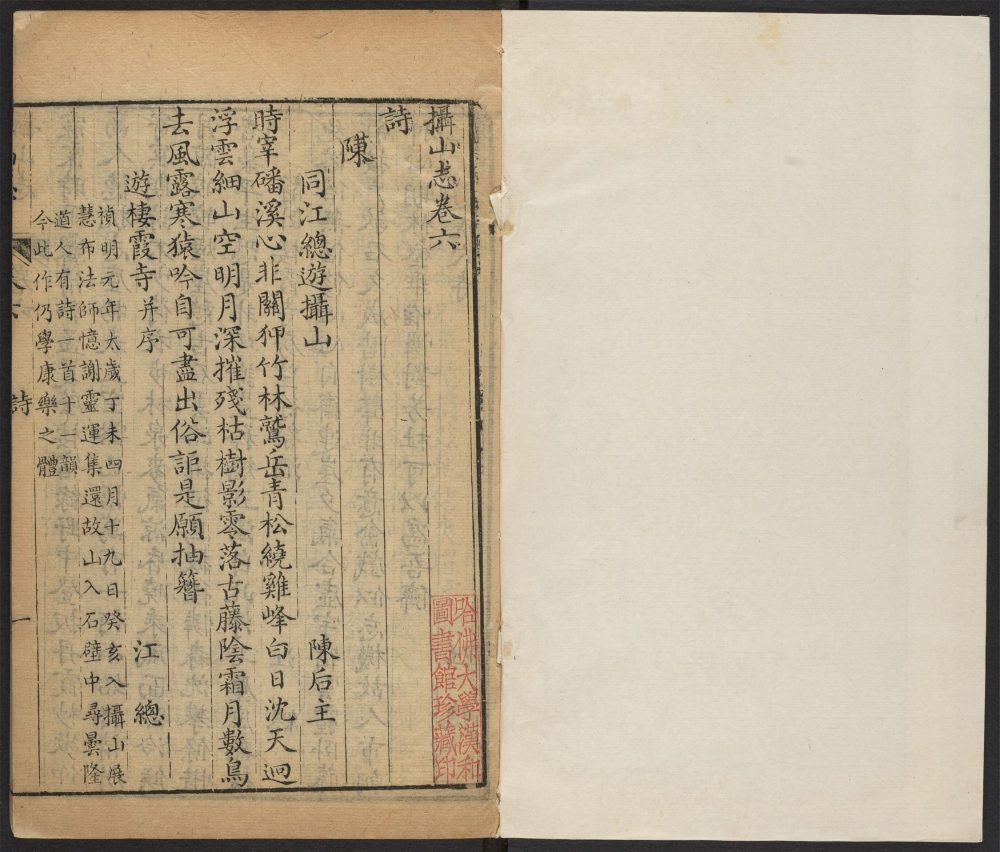 攝山志卷六
詩
陳
同江總遊攝山　陳后主
時宰磻溪心非關狎竹林鷲岳青松繞雞峰白日沈天迥
浮雲細山空明月深摧殘枯樹影零落古藤陰霜月數鳥
去風露寒猿吟自可盡出俗詎是願抽簪
遊棲霞寺并序　江總
禎明元年太歲丁未四月十九日癸亥入攝山展
慧布法師憶謝靈運集還故山入石壁中尋曇隆
道人有詩一首十一韻
今此作仍學康樂之體
詩
一
哈佛大學漢和
圖書館珍藏印